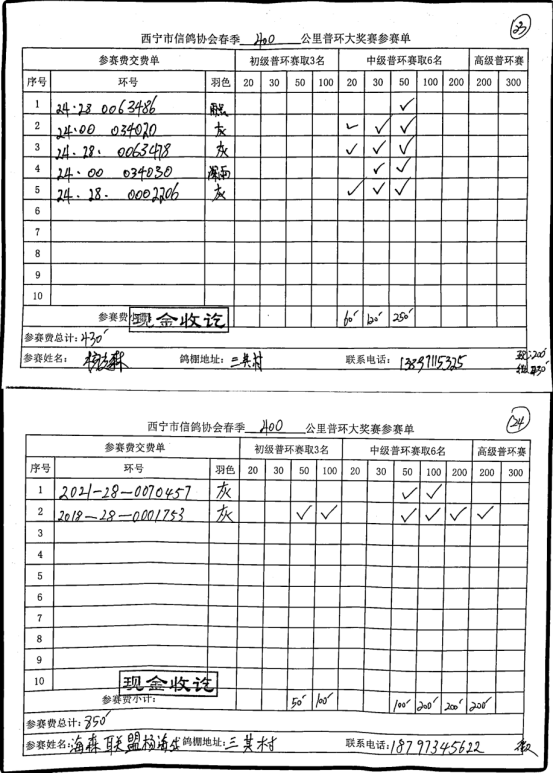 23
西宁市信鸽协会春季 400 公里普环大奖赛参赛单
参赛费交费单 初级普环赛取3名 中级普环赛取6名 高级普环赛
序号 环号 羽色 20 30 50 100 20 30 50 100 200 200 300
1 24-28 0063486 ✓
2 24-00 034020 灰 ✓ ✓ ✓
3 24-28- 0063478 灰 ✓ ✓ ✓
4 24-00 034030 ✓ ✓
5 24-28- 0002206 灰 ✓ ✓ ✓
6
7
8
9
10
参赛费 现金收讫 60 120 250
参赛费总计:430
参赛姓名: 鸽棚地址:三其村 联系电话:13897115325
24
西宁市信鸽协会春季 400 公里普环大奖赛参赛单
参赛费交费单 初级普环赛取3名 中级普环赛取6名 高级普环赛
序号 环号 羽色 20 30 50 100 20 30 50 100 200 200 300
1 2021-28-0070457 灰 ✓ ✓
2 2018-28-0001753 灰 ✓ ✓ ✓ ✓ ✓ ✓
3
4
5
6
7
8
9
10 现金收讫
参赛费小计: 50 100 100 200 200 200
参赛费总计:850
参赛姓名:海森联盟杨海 鸽棚地址:三其村 联系电话:18797345622